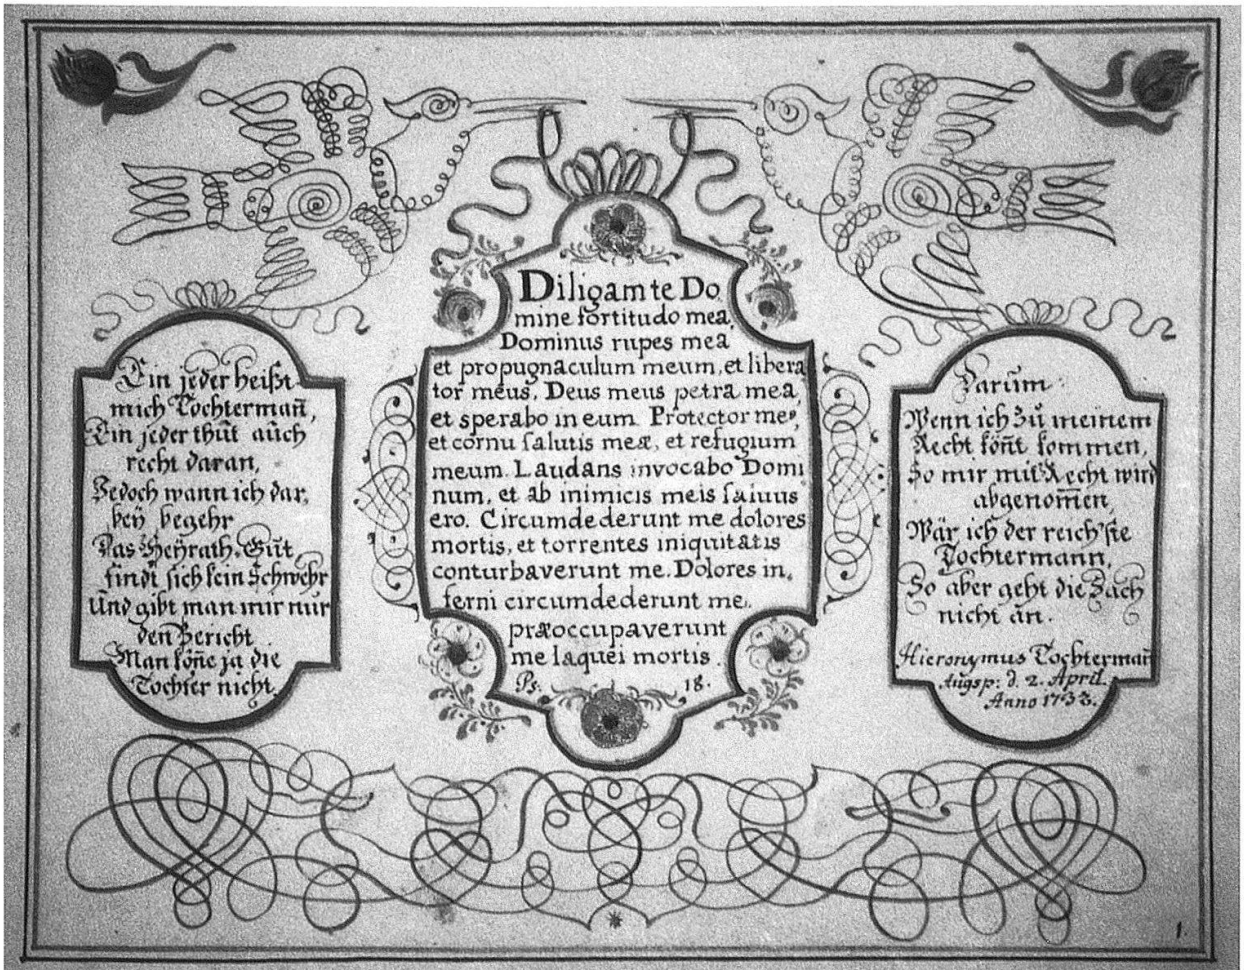 Ein jeder heißt
mich Tochterman̄,
Ein jeder thūt aūch
recht daran,
Jedoch wann ich dar,
beÿ begehr
Das Heÿrath-Gūt
findt sich kein Schwehr
Ūnd gibt man mir nūr
den Bericht
Man kön̄e ja die
Tochter nicht.
Diligam te Do
mine fortitudo mea,
Dominus rupes mea
et propugnaculum meum, et libera
tor meus, Deus meus petra mea,
et sperabo in eum. Protector meꝰ,
et cornu salutis meæ, et refugium
meum. Laudans invocabo Domi
num, et ab inimicis meis salvus
ero. Circumdederunt me dolores
mortis, et torrentes iniquitatis
conturbaverunt me. Dolores in,
ferni circumdederunt me.
præoccupaverunt
me laquei mortis.
Ps. 18.
Darūm
Wenn ich zū meinem
Recht kön̄t kommen,
So mir mit Recht wird
abgenom̄en,
Wär ich der reich'ste
Tochtermann,
So aber geht die Sach
nicht ān.
Hieronymus Tochterman̄
Aūgsp: d. 2. April.
Anno 1733.
1.